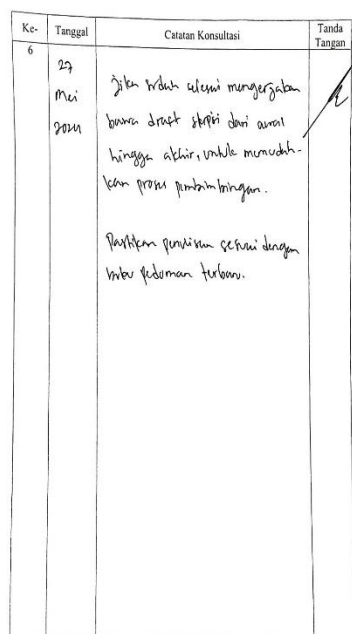 Ke- Tanggal Catatan Konsultasi Tanda Tangan
6
27 Mei 2024
Jika sudah selesai mengerjakan
bawa draft skripsi dari awal
hingga akhir, untuk memudah-
kan proses pembimbingan.
Pastikan penulisan sesuai dengan
buku pedoman terbaru.